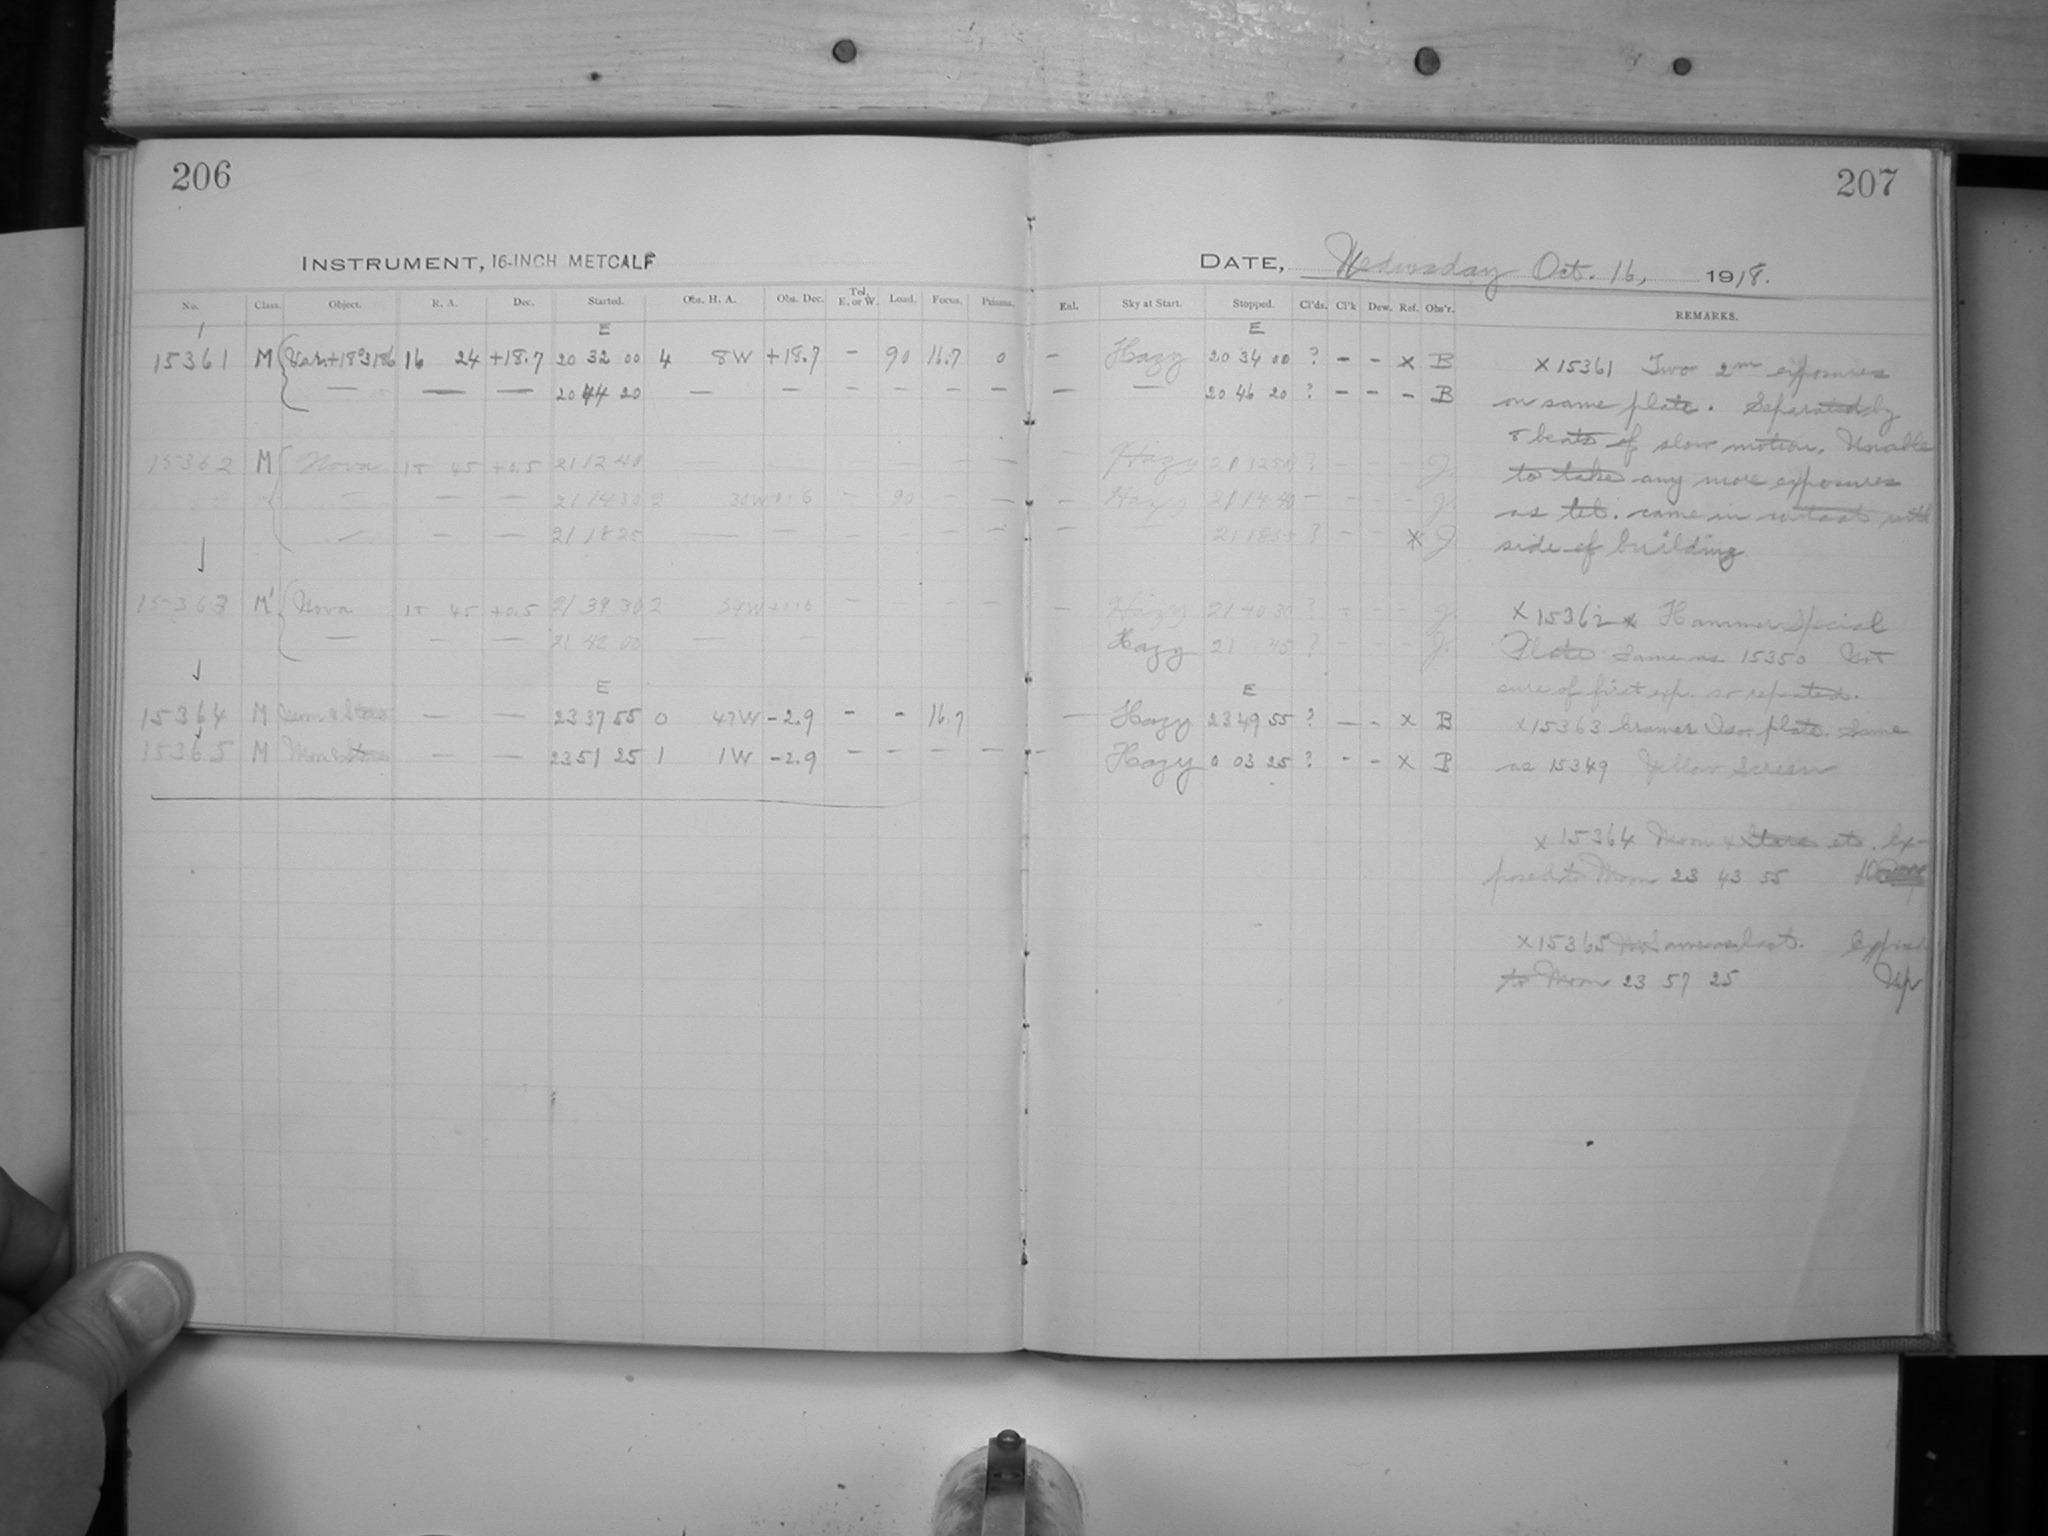 206
INSTRUMENT, 16-INCH METCALF
No. Class. Object. R. A. Dec. Started. Obs. H. A. Obs. Dec. Tel. E. or W. Load. Focus. Prisms.
E
15361 M 16 24 +18.7 20 32 00 4 8W +18.7 - 90 16.7 0
— — — 20 44 20 — — — — — —
15362 M Nova 15 45 +0.5 21 12 40
— — — 21 14 30 2 30W - 90 - -
— — — 21 18 25 — — — — — —
15363 M' Nova 15 45 +0.5 21 39 30 2 - - - -
— — — 21 42 00 — —
E
15364 M — — 23 37 55 0 47W -2.9 - - 16.7
15365 M Moon & Stars — — 23 51 25 1 1W -2.9 - - - -
207
DATE, Wednesday Oct. 16, 1918.
Eal. Sky at Start. Stopped. Cl'ds. Cl'k Dew. Ref. Obs'r.
REMARKS.
E
— Hazy 20 34 00 ? - - x B
— — 20 46 20 ? - - - B
— Hazy 21 12 50 ? - - - J.
— Hazy 21 14 40 - - - - J.
— 21 18 35 ? - - x J
— Hazy 21 40 30 ? - - - J.
Hazy 21 45 ? - - - J.
E
— Hazy 23 49 55 ? - - x B
— Hazy 0 03 25 ? - - x B
x 15361 Two 2m exposures
on same plate. Separated by
8 beats of slow motion. Unable
to take any more exposures
as tel. came in contact with
side of building.
x 15362 x Hammer Special
Plate Same as 15350 Not
sure of first exp. so repeated.
x 15363 Cramer Iso. plate. Same
as 15349 Yellow Screen
x 15364 Moon & Stars etc. Ex-
posed to Moon 23 43 55
x 15365 Same as last. Exposed
to Moon 23 57 25